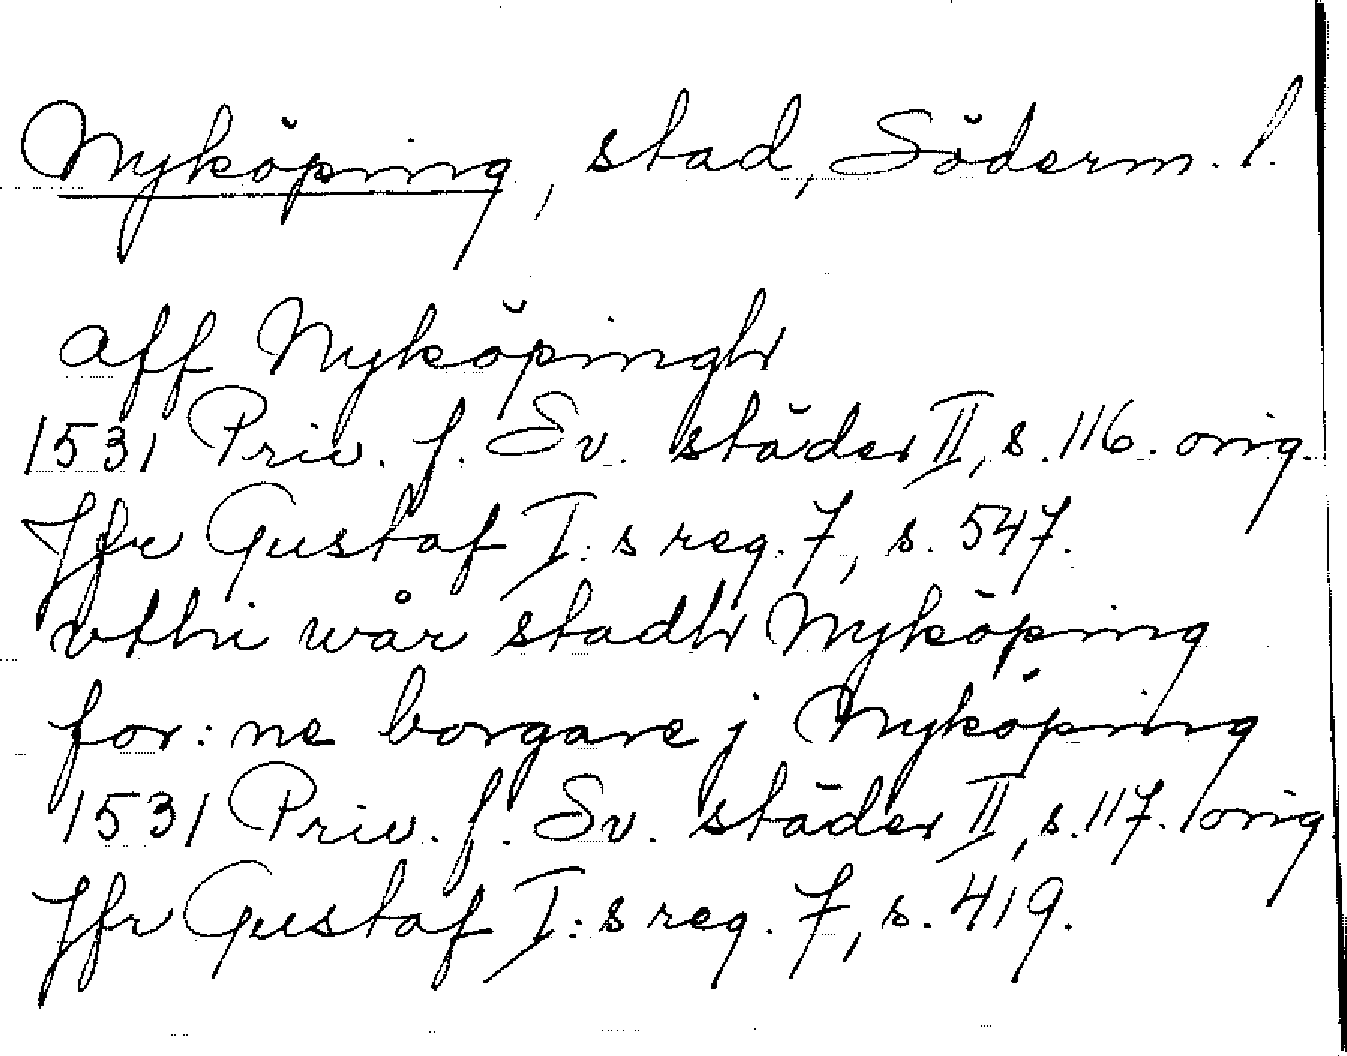 Nyköping, stad, Söderm. l.
aff Nyköpingh
1531 Priv. f. Sv. städer II, s. 116. orig.
Jfr Gustaf I:s reg. 7, s. 547.
vthi wår stadh Nyköping
for:ne borgare j Nyköping
1531 Priv. f. Sv. städer II, s. 117. orig.
Jfr Gustaf I:s reg. 7, s. 419.